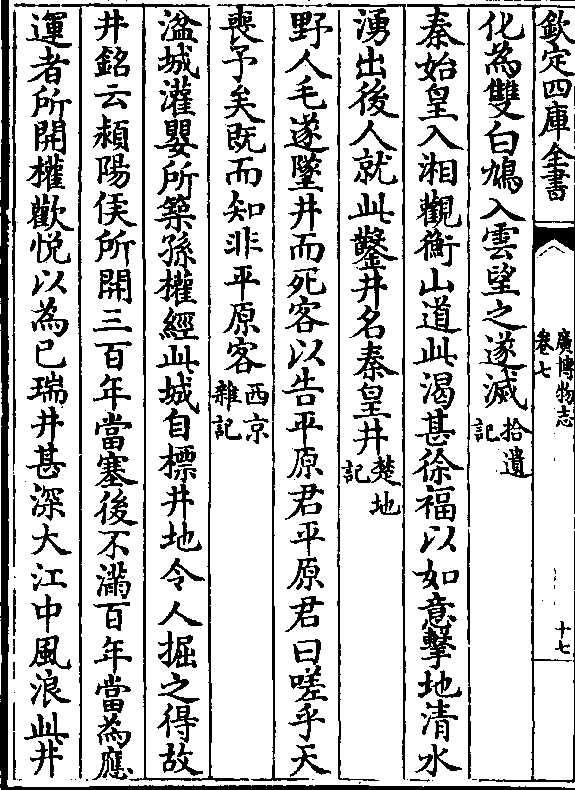 欽定四庫全書
廣博物志
卷七
十七
化為雙白鳩入雲望之遂滅拾遺記
秦始皇入湘觀衡山道此渴甚徐福以如意擊地清水
湧出後人就此鑿井名秦皇井楚地記
野人毛遂墜井而死客以告平原君平原君曰嗟乎天
喪予矣既而知非平原客西京雜記
湓城灌嬰所築孫權經此城自標井地令人掘之得故
井銘云潁陽侯所開三百年當塞後不滿百年當為應
運者所開權歡悅以為已瑞井甚深大江中風浪此井